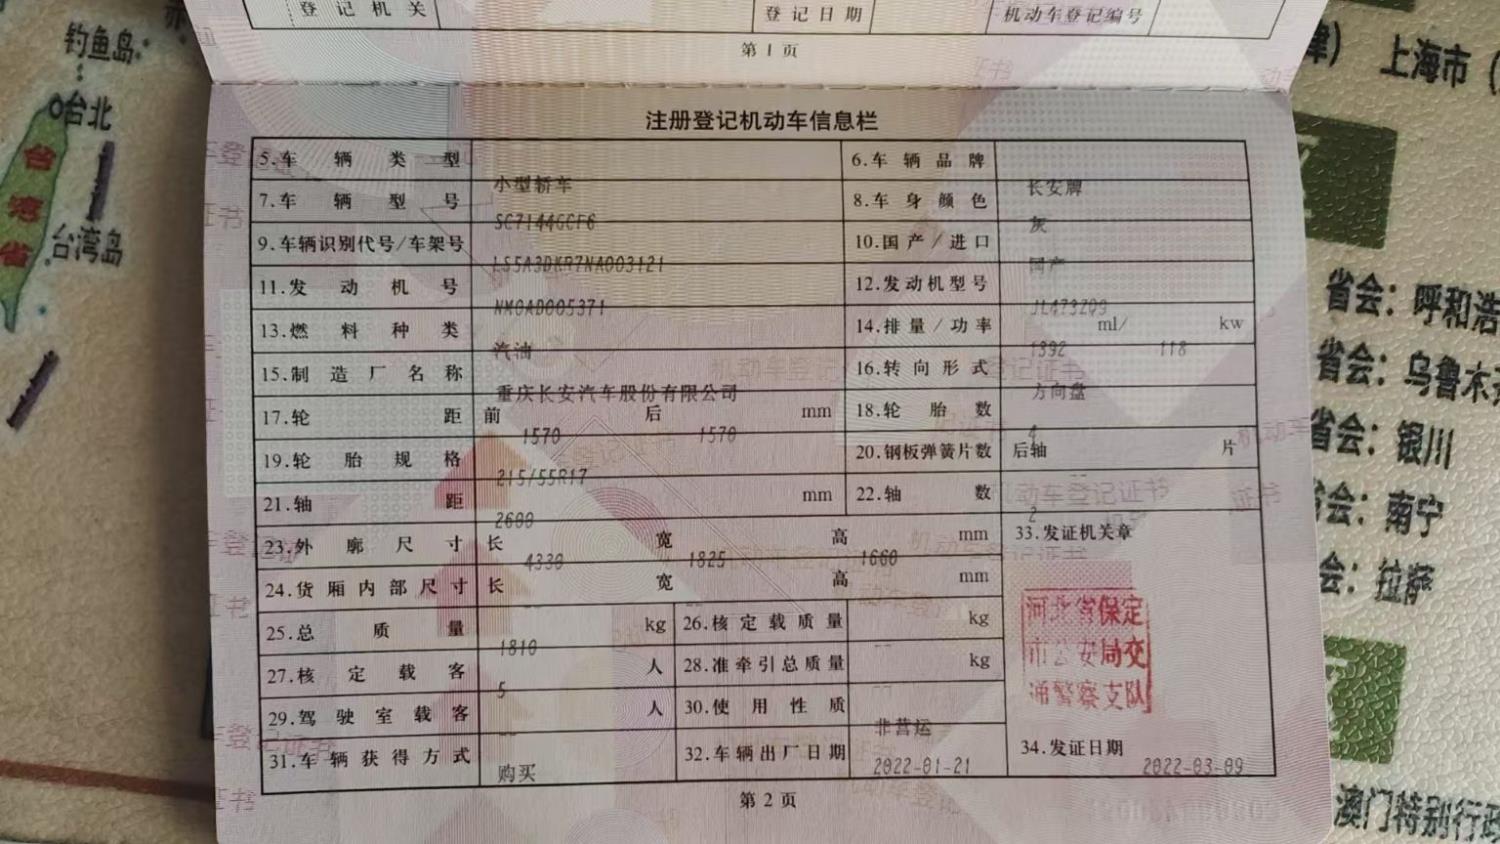 登记机关 登记日期 机动车登记编号
第 1 页
注册登记机动车信息栏
5.车辆类型 小型轿车 6.车辆品牌 长安牌
7.车辆型号 SC7144GCF6 8.车身颜色 灰
9.车辆识别代号/车架号 LS5A3DKR7NA003121 10.国产/进口 国产
11.发动机号 NM0AD005371 12.发动机型号 JL473ZQ9
13.燃料种类 汽油 14.排量/功率 1392 ml/ 118 kw
15.制造厂名称 重庆长安汽车股份有限公司 16.转向形式 方向盘
17.轮距 前 1570 后 1570 mm 18.轮胎数 4
19.轮胎规格 215/55R17 20.钢板弹簧片数 后轴 -- 片
21.轴距 2600 mm 22.轴数 2
23.外廓尺寸 长 4330 宽 1825 高 1660 mm 33.发证机关章
24.货厢内部尺寸 长 -- 宽 -- 高 -- mm
25.总质量 1810 kg 26.核定载质量 -- kg
27.核定载客 5 人 28.准牵引总质量 -- kg
29.驾驶室载客 -- 人 30.使用性质 非营运
31.车辆获得方式 购买 32.车辆出厂日期 2022-01-21 34.发证日期 2022-03-09
河北省保定
市公安局交
通警察支队
第 2 页
钓鱼岛
台北
台湾省
台湾岛
上海市
省会：呼和浩
省会：乌鲁木齐
省会：银川
省会：南宁
会：拉萨
澳门特别行政